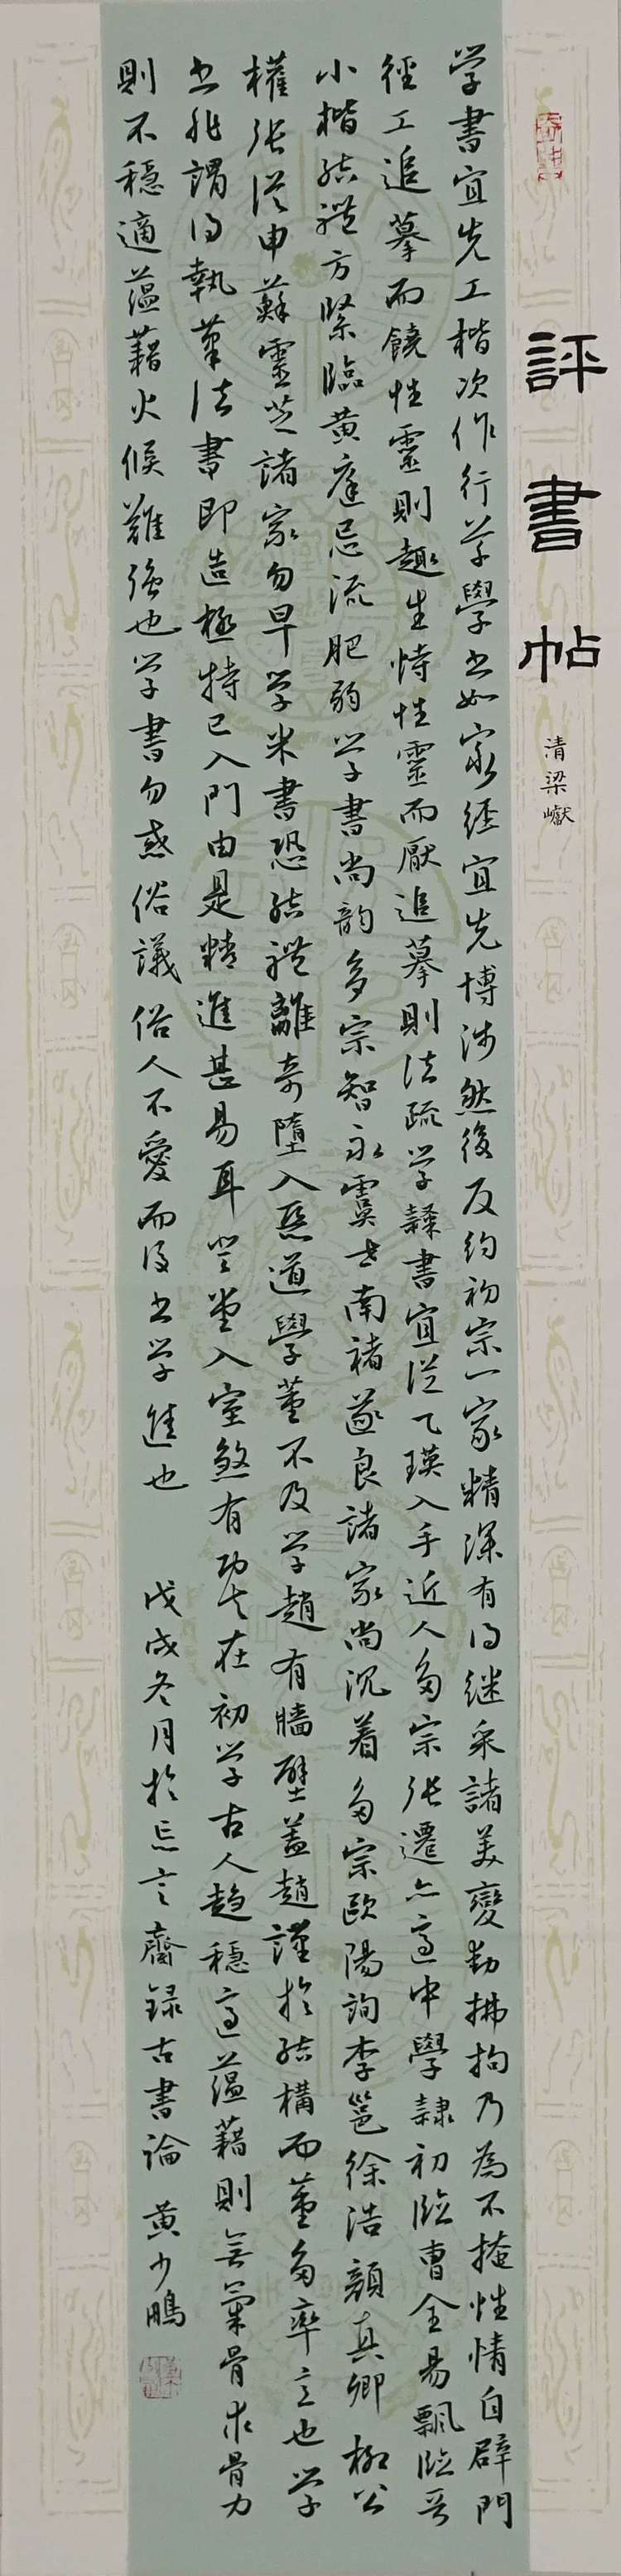 評書帖
清梁巘
学書宜先工楷次作行草學書如家經宜先博涉然後反約初宗一家精深有得继采諸美變動拂拘乃為不掩性情自辟門
徑工追摹而饒性靈則趣生恃性靈而厭追摹則法疏学隸書宜從乙瑛入手近人多宗張遷亦適中學隸初临曹全易飄临晋
小楷结體方緊臨黄庭忌流肥弱学書尚韵多宗智永虞世南褚遂良諸家尚沉着多宗歐陽詢李邕徐浩顏真卿柳公
權張從申蘇靈芝諸家勿早学米書恐结體離奇墮入惡道學董不及学趙有牆壁蓋趙謹於结構而董多率意也学
书非謂得執筆法書即造極特已入門由是精進甚易耳登堂入室煞有功夫在初学古人趋穩適蕴藉則無氣骨求骨力
則不穩適蕴藉火候難强也学書勿惑俗議俗人不愛而後书学進也 戊戌冬月於忘言齋録古書論 黄少鵬